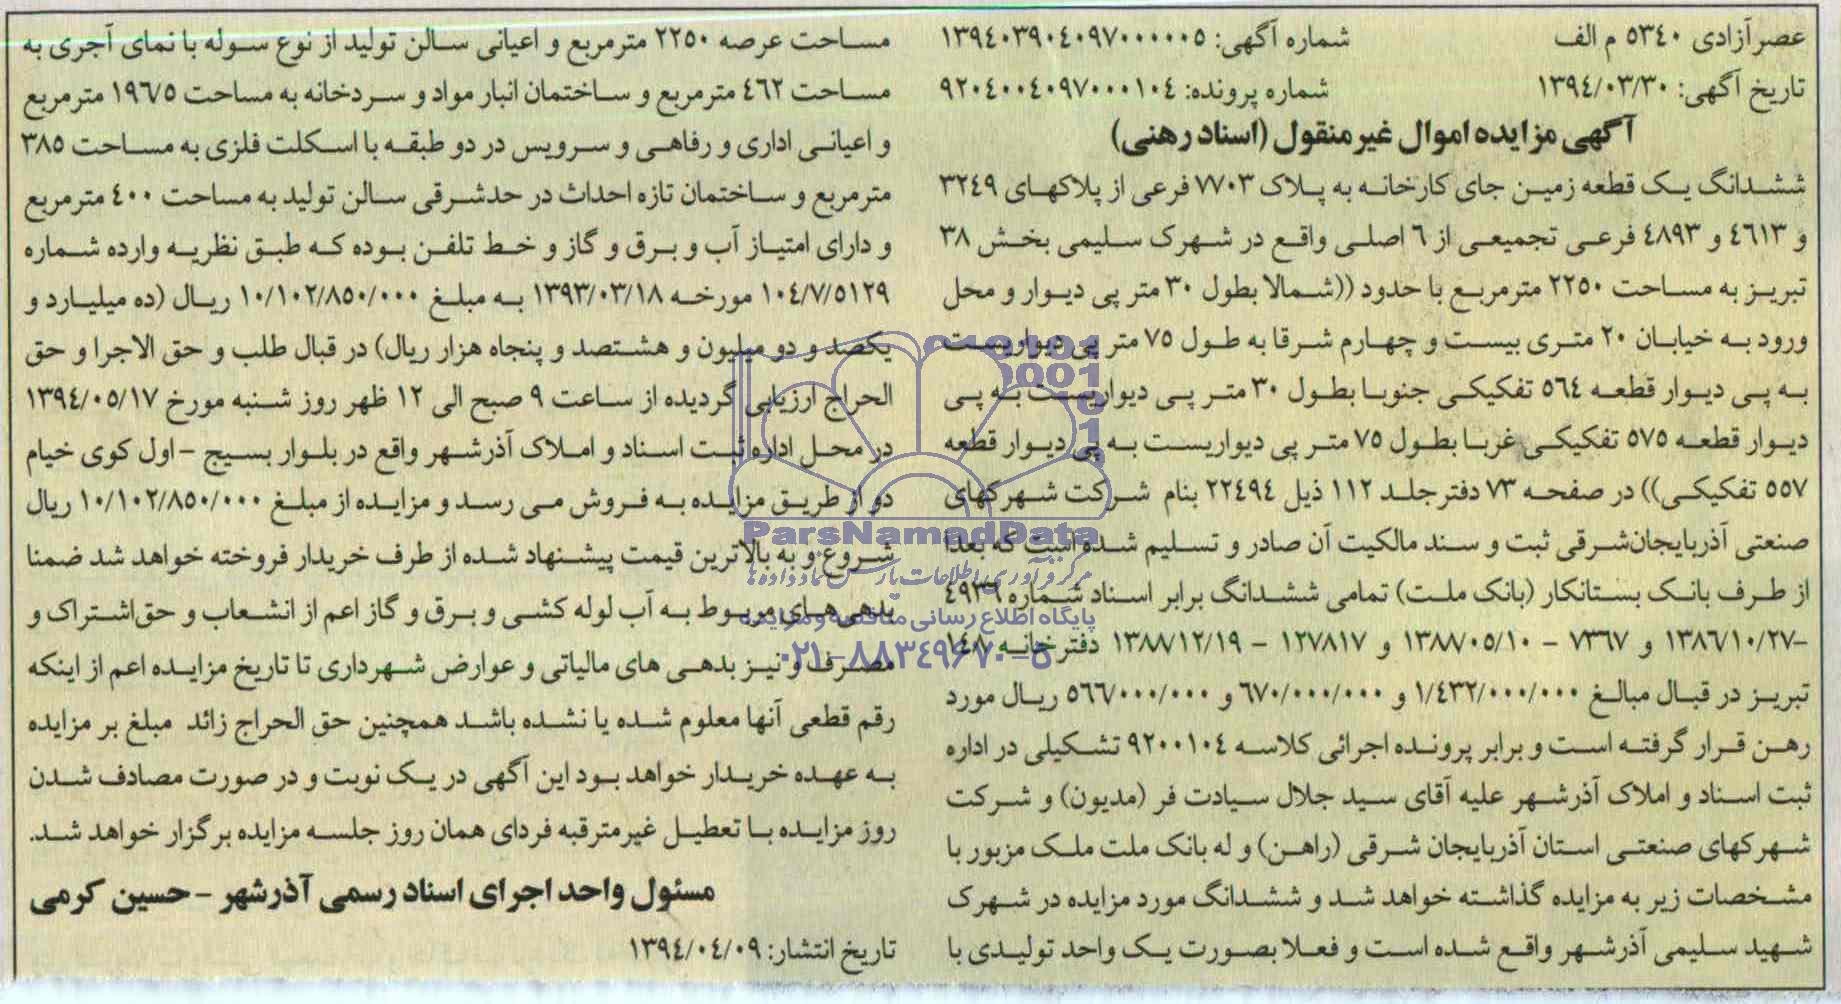 عصرآزادی ٥٣٤٠ م الف
شماره آگهی: ١٣٩٤٠٣٩٠٤٠٩٧٠٠٠٠٠٥
تاریخ آگهی: ١٣٩٤/٠٣/٣٠
شماره پرونده: ٩٢٠٤٠٠٤٠٩٧٠٠٠١٠٤
آگهی مزایده اموال غیرمنقول (اسناد رهنی)
ششدانگ یک قطعه زمین جای کارخانه به پلاک ٧٧٠٣ فرعی از پلاکهای ٣٢٤٩
و ٤٦١٣ و ٤٨٩٣ فرعی تجمیعی از ٦ اصلی واقع در شهرک سلیمی بخش ٣٨
تبریز به مساحت ٢٢٥٠ مترمربع با حدود ((شمالا بطول ٣٠ متر پی دیوار و محل
ورود به خیابان ٢٠ متری بیست و چهارم شرقا به طول ٧٥ متر پی دیواریست
به پی دیوار قطعه ٥٦٤ تفکیکی جنوبا بطول ٣٠ متر پی دیواریست به پی
دیوار قطعه ٥٧٥ تفکیکی غربا بطول ٧٥ متر پی دیواریست به پی دیوار قطعه
٥٥٧ تفکیکی)) در صفحه ٧٣ دفترجلد ١١٢ ذیل ٢٢٤٩٤ بنام شرکت شهرکهای
صنعتی آذربایجان‌شرقی ثبت و سند مالکیت آن صادر و تسلیم شده است که بعدا
از طرف بانک بستانکار (بانک ملت) تمامی ششدانگ برابر اسناد شماره ٤٩٣٦
-١٣٨٦/١٠/٢٧ و ٧٣٦٧ - ١٣٨٨/٠٥/١٠ و ١٢٧٨١٧ - ١٣٨٨/١٢/١٩ دفترخانه ١٤٨
تبریز در قبال مبالغ ١/٤٣٢/٠٠٠/٠٠٠ و ٦٧٠/٠٠٠/٠٠٠ و ٥٦٦/٠٠٠/٠٠٠ ریال مورد
رهن قرار گرفته است و برابر پرونده اجرائی کلاسه ٩٢٠٠١٠٤ تشکیلی در اداره
ثبت اسناد و املاک آذرشهر علیه آقای سید جلال سیادت فر (مدیون) و شرکت
شهرکهای صنعتی استان آذربایجان شرقی (راهن) و له بانک ملت ملک مزبور با
مشخصات زیر به مزایده گذاشته خواهد شد و ششدانگ مورد مزایده در شهرک
شهید سلیمی آذرشهر واقع شده است و فعلا بصورت یک واحد تولیدی با
مساحت عرصه ٢٢٥٠ مترمربع و اعیانی سالن تولید از نوع سوله با نمای آجری به
مساحت ٤٦٢ مترمربع و ساختمان انبار مواد و سردخانه به مساحت ١٩٦/٥ مترمربع
و اعیانی اداری و رفاهی و سرویس در دو طبقه با اسکلت فلزی به مساحت ٣٨٥
مترمربع و ساختمان تازه احداث در حدشرقی سالن تولید به مساحت ٤٠٠ مترمربع
و دارای امتیاز آب و برق و گاز و خط تلفن بوده که طبق نظریه وارده شماره
١٠٤/٧/٥١٢٩ مورخه ١٣٩٣/٠٣/١٨ به مبلغ ١٠/١٠٢/٨٥٠/٠٠٠ ریال (ده میلیارد و
یکصد و دو میلیون و هشتصد و پنجاه هزار ریال) در قبال طلب و حق الاجرا و حق
الحراج ارزیابی گردیده از ساعت ٩ صبح الی ١٢ ظهر روز شنبه مورخ ١٣٩٤/٠٥/١٧
در محل اداره ثبت اسناد و املاک آذرشهر واقع در بلوار بسیج - اول کوی خیام
دو از طریق مزایده به فروش می رسد و مزایده از مبلغ ١٠/١٠٢/٨٥٠/٠٠٠ ریال
شروع و به بالاترین قیمت پیشنهاد شده از طرف خریدار فروخته خواهد شد ضمنا
بدهی های مربوط به آب لوله کشی و برق و گاز اعم از انشعاب و حق‌اشتراک و
مصرف و نیز بدهی های مالیاتی و عوارض شهرداری تا تاریخ مزایده اعم از اینکه
رقم قطعی آنها معلوم شده یا نشده باشد همچنین حق الحراج زائد مبلغ بر مزایده
به عهده خریدار خواهد بود این آگهی در یک نوبت و در صورت مصادف شدن
روز مزایده با تعطیل غیرمترقبه فردای همان روز جلسه مزایده برگزار خواهد شد.
مسئول واحد اجرای اسناد رسمی آذرشهر - حسین کرمی
تاریخ انتشار: ١٣٩٤/٠٤/٠٩
ParsNamadData
مرکز فرآوری اطلاعات پارس نماد داده‌ها
پایگاه اطلاع رسانی مناقصه و مزایده
٠٢١-٨٨٣٤٩٦٧٠-٥